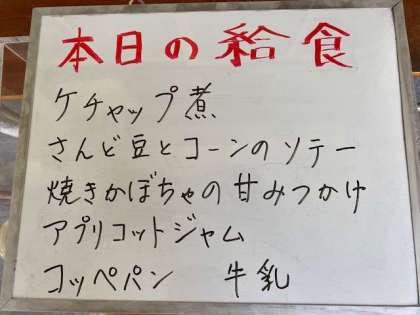 本日の給食
ケチャップ煮
さんど豆とコーンのソテー
焼きかぼちゃの甘みつかけ
アプリコットジャム
コッペパン　牛乳